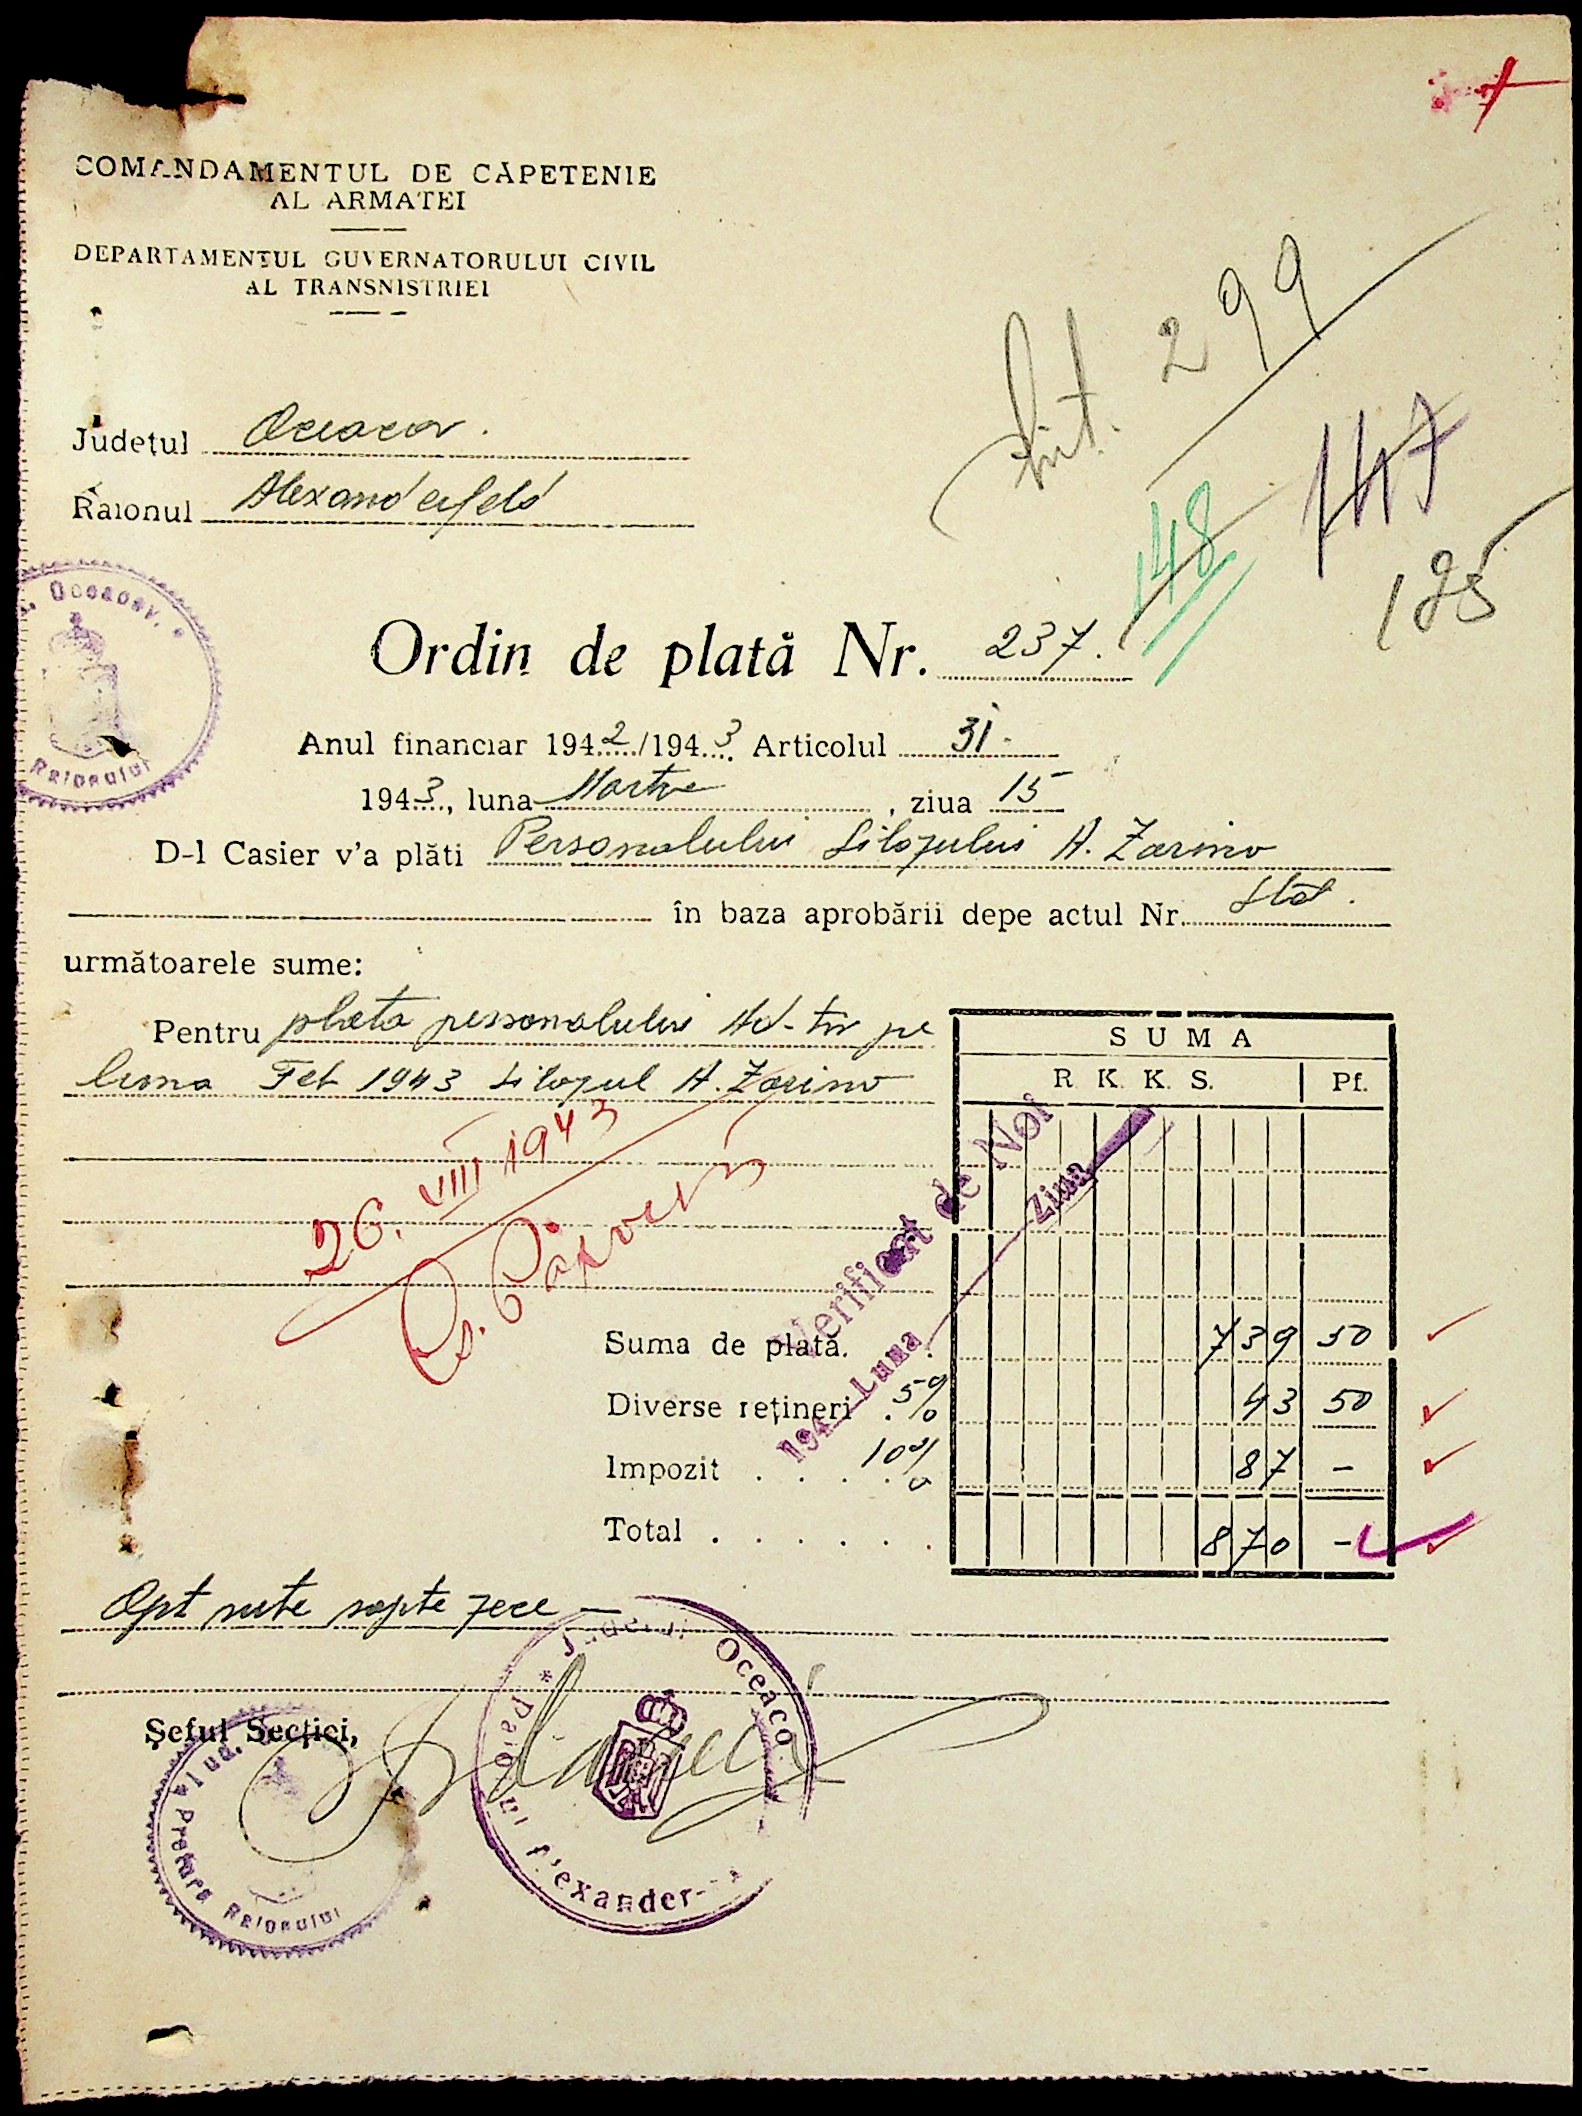 COMANDAMENTUL DE CĂPETENIE
AL ARMATEI
DEPARTAMENTUL GUVERNATORULUI CIVIL
AL TRANSNISTRIEI
299
147
148
195
Județul Oceacov.
Raionul Alexanderfeld
Oceacov.
Raionului
Ordin de plată Nr. 237.
Anul financiar 1942/1943 Articolul 31
1943, luna Martie, ziua 15
D-l Casier v'a plăti Personalului Silozului A. Zarino
în baza aprobării depe actul Nr. Stat.
următoarele sume:
Pentru plata personalului Ad-tiv pe
luna Feb 1943 Silozul A. Zarino
SUMA
R. K. K. S. Pf.
26. VIII 1943
Verificat de Noi
194 Luna Ziua
Suma de plată. 739 50
Diverse rețineri 5% 43 50
Impozit . . . 10% 87 -
Total . . . . . . 870 -
Opt sute șapte zece —
Șeful Secției,
Jud.
Pretura Raionului
Județul Oceaco
Raionul Alexander-